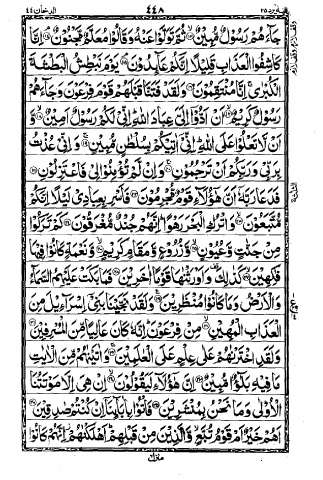 الدخان ٤٤ ٤٤٨ ٢٥
جَآءَهُمْ رَسُوْلٌ مُّبِيْنٌ ثُمَّ تَوَلَّوْا عَنْهُ وَقَالُوْا مُعَلَّمٌ مَّجْنُوْنٌ اِنَّا
كَاشِفُوا الْعَذَابِ قَلِيْلًا اِنَّكُمْ عَآئِدُوْنَ يَوْمَ نَبْطِشُ الْبَطْشَةَ
الْكُبْرٰى اِنَّا مُنْتَقِمُوْنَ وَلَقَدْ فَتَنَّا قَبْلَهُمْ قَوْمَ فِرْعَوْنَ وَجَآءَهُمْ
رَسُوْلٌ كَرِيْمٌ اَنْ اَدُّوْٓا اِلَىَّ عِبَادَ اللّٰهِ اِنِّىْ لَكُمْ رَسُوْلٌ اَمِيْنٌ وَّ
اَنْ لَّا تَعْلُوْا عَلَى اللّٰهِ اِنِّىْٓ اٰتِيْكُمْ بِسُلْطٰنٍ مُّبِيْنٍ وَاِنِّىْ عُذْتُ
بِرَبِّىْ وَرَبِّكُمْ اَنْ تَرْجُمُوْنِ وَاِنْ لَّمْ تُؤْمِنُوْا لِىْ فَاعْتَزِلُوْنِ
فَدَعَا رَبَّهٗٓ اَنَّ هٰٓؤُلَآءِ قَوْمٌ مُّجْرِمُوْنَ فَاَسْرِ بِعِبَادِىْ لَيْلًا اِنَّكُمْ
مُّتَّبَعُوْنَ وَاتْرُكِ الْبَحْرَ رَهْوًا اِنَّهُمْ جُنْدٌ مُّغْرَقُوْنَ كَمْ تَرَكُوْا
مِنْ جَنّٰتٍ وَّعُيُوْنٍ وَّزُرُوْعٍ وَّمَقَامٍ كَرِيْمٍ وَّنَعْمَةٍ كَانُوْا فِيْهَا
فٰكِهِيْنَ كَذٰلِكَ وَاَوْرَثْنٰهَا قَوْمًا اٰخَرِيْنَ فَمَا بَكَتْ عَلَيْهِمُ السَّمَآءُ
وَالْاَرْضُ وَمَا كَانُوْا مُنْظَرِيْنَ وَلَقَدْ نَجَّيْنَا بَنِىْٓ اِسْرَآءِيْلَ مِنَ
الْعَذَابِ الْمُهِيْنِ مِنْ فِرْعَوْنَ اِنَّهٗ كَانَ عَالِيًا مِّنَ الْمُسْرِفِيْنَ
وَلَقَدِ اخْتَرْنٰهُمْ عَلٰى عِلْمٍ عَلَى الْعٰلَمِيْنَ وَاٰتَيْنٰهُمْ مِّنَ الْاٰيٰتِ
مَا فِيْهِ بَلٰٓؤٌا مُّبِيْنٌ اِنَّ هٰٓؤُلَآءِ لَيَقُوْلُوْنَ اِنْ هِىَ اِلَّا مَوْتَتُنَا
الْاُوْلٰى وَمَا نَحْنُ بِمُنْشَرِيْنَ فَاْتُوْا بِاٰبَآئِنَآ اِنْ كُنْتُمْ صٰدِقِيْنَ
اَهُمْ خَيْرٌ اَمْ قَوْمُ تُبَّعٍ وَّالَّذِيْنَ مِنْ قَبْلِهِمْ اَهْلَكْنٰهُمْ اِنَّهُمْ كَانُوْا